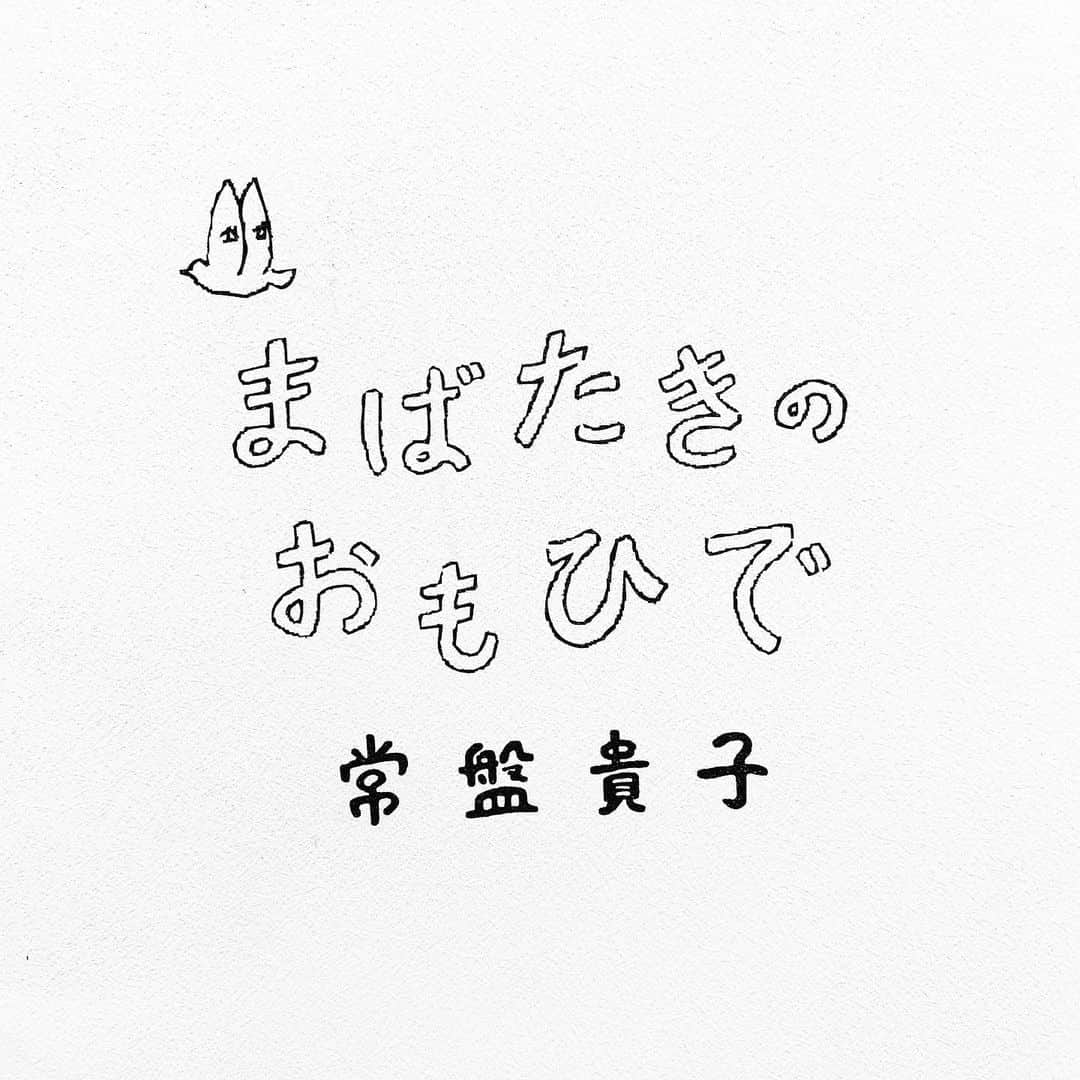 まばたきの
おもひで
常盤貴子